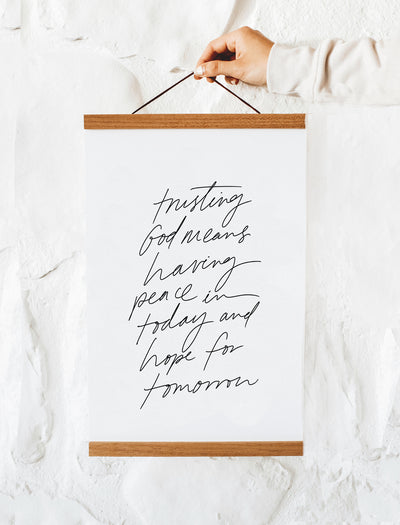 trusting
God means
having
peace in
today and
hope for
tomorrow